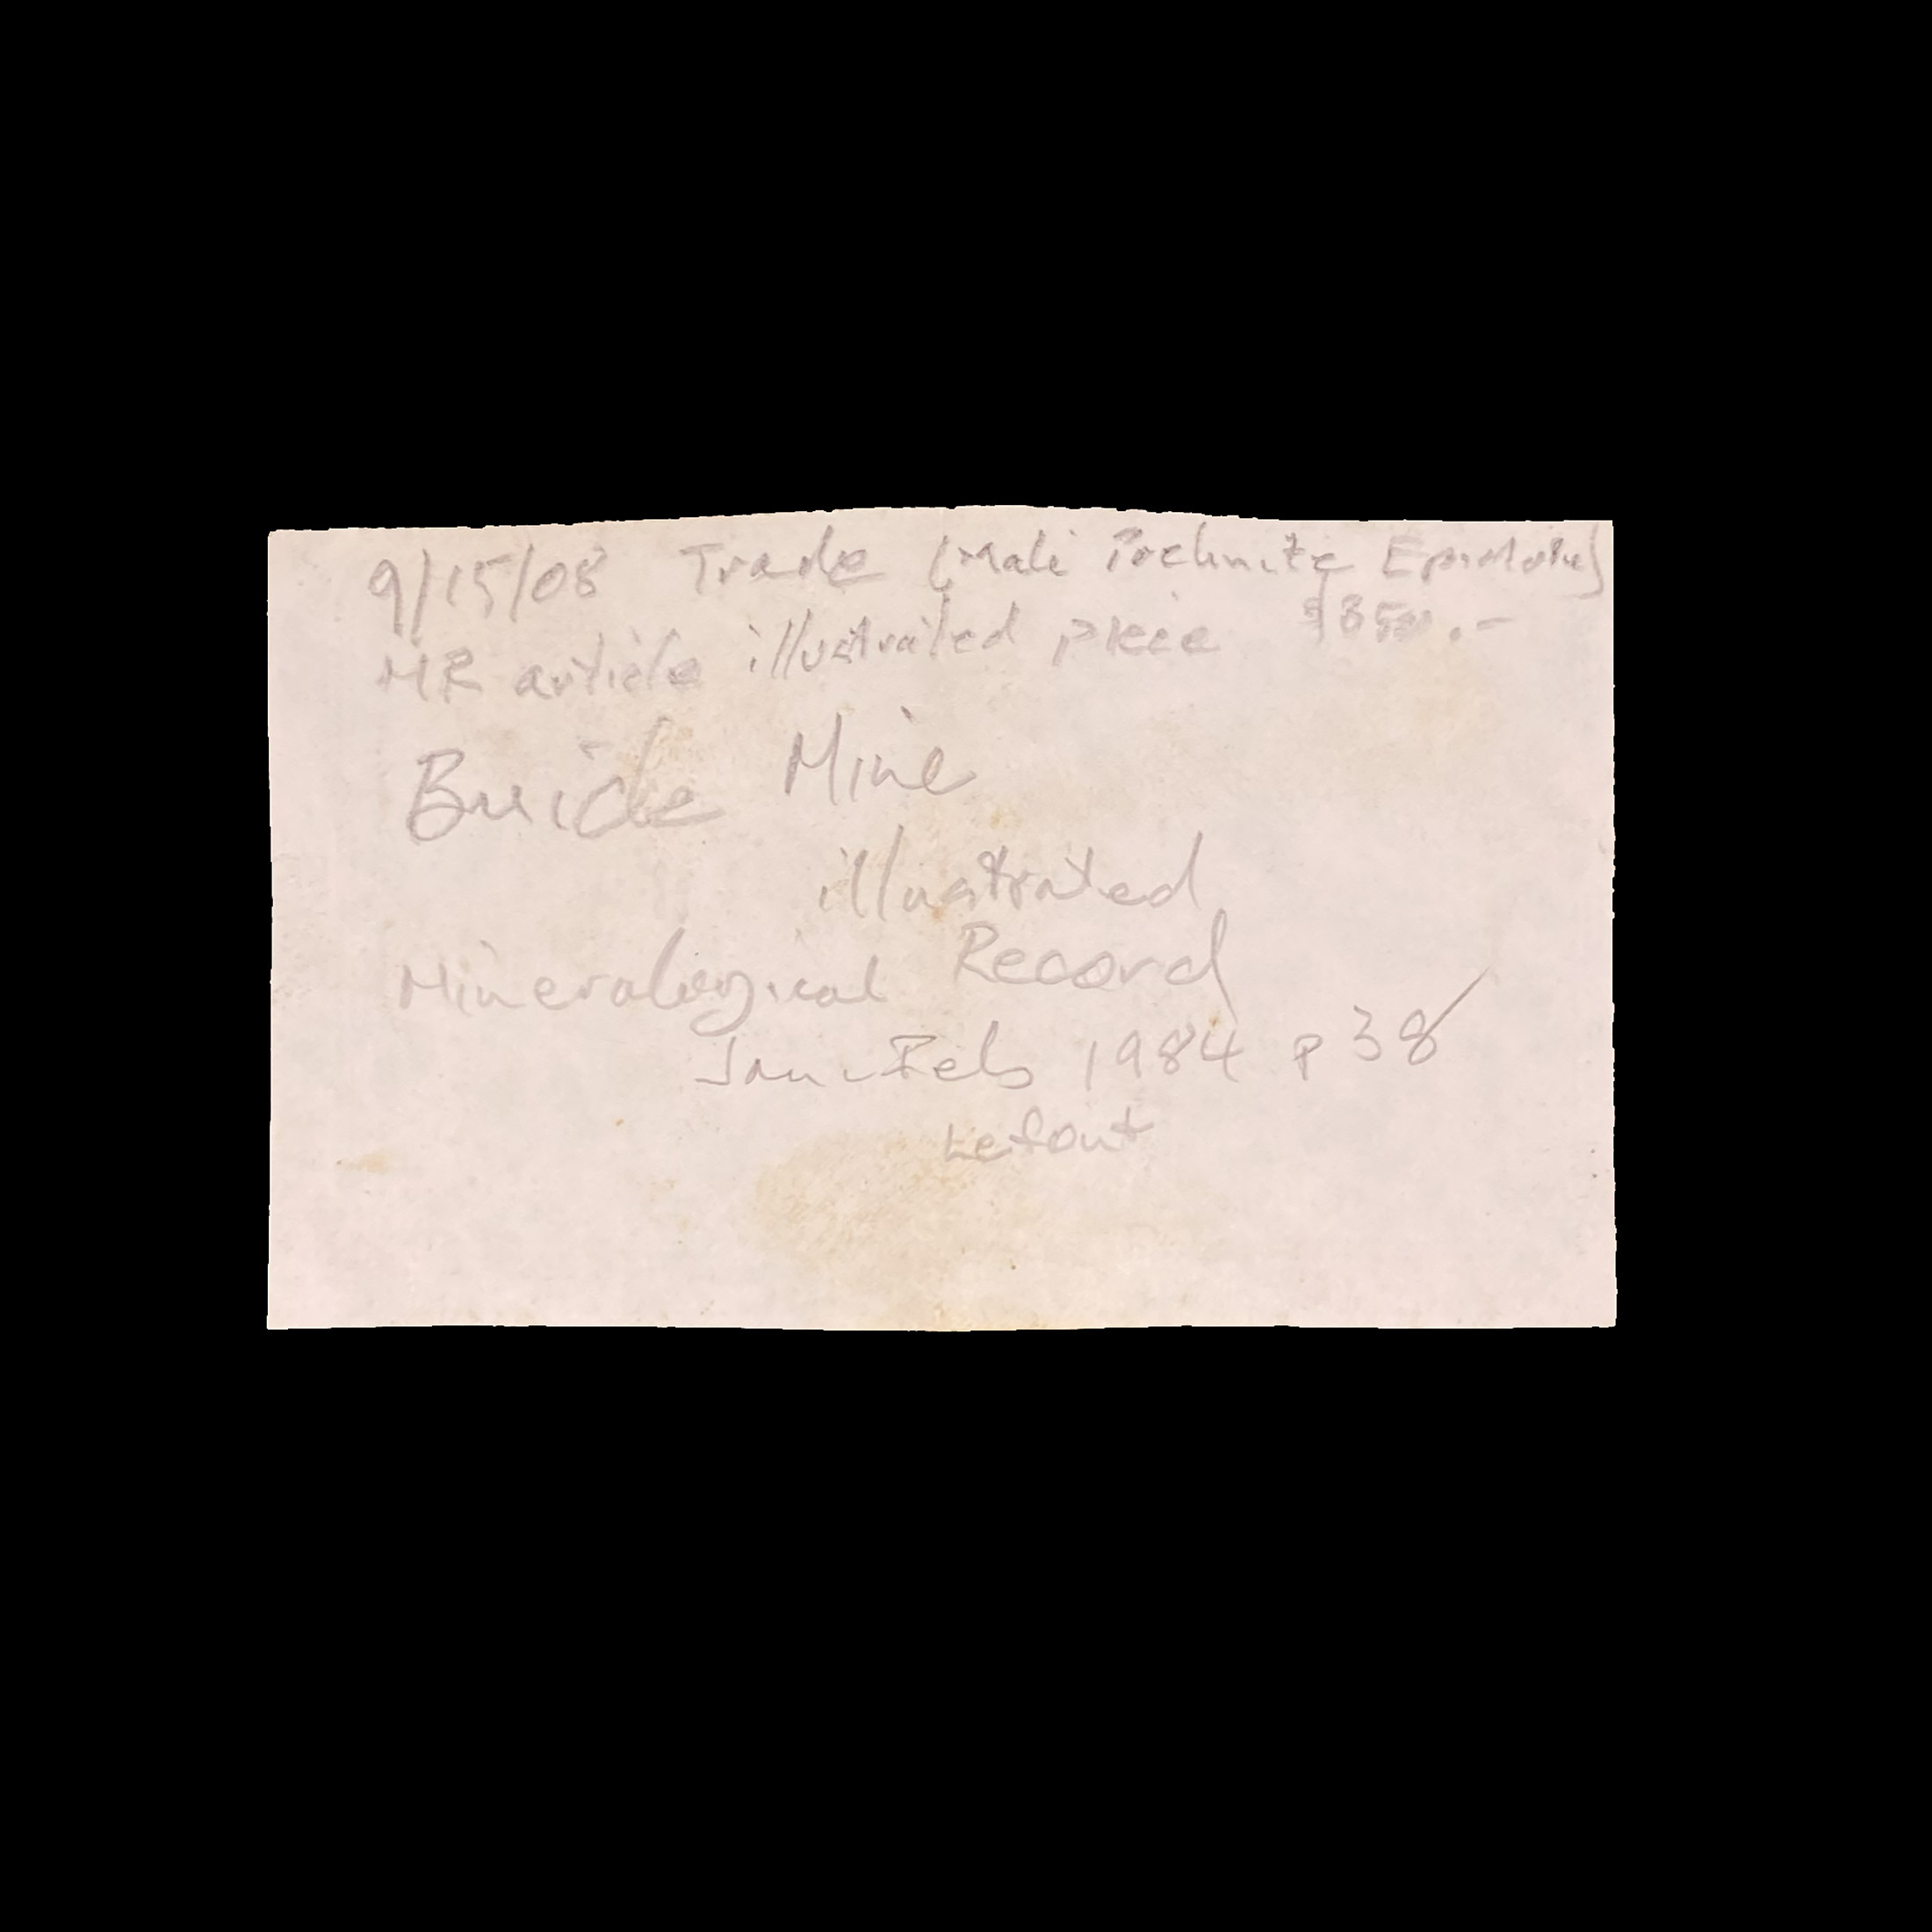 9/15/08 Trade (Mali Prehnite Epidote)
MR article illustrated piece $350.-
Buick Mine
illustrated
Mineralogical Record
Jan-Feb 1984 p 38